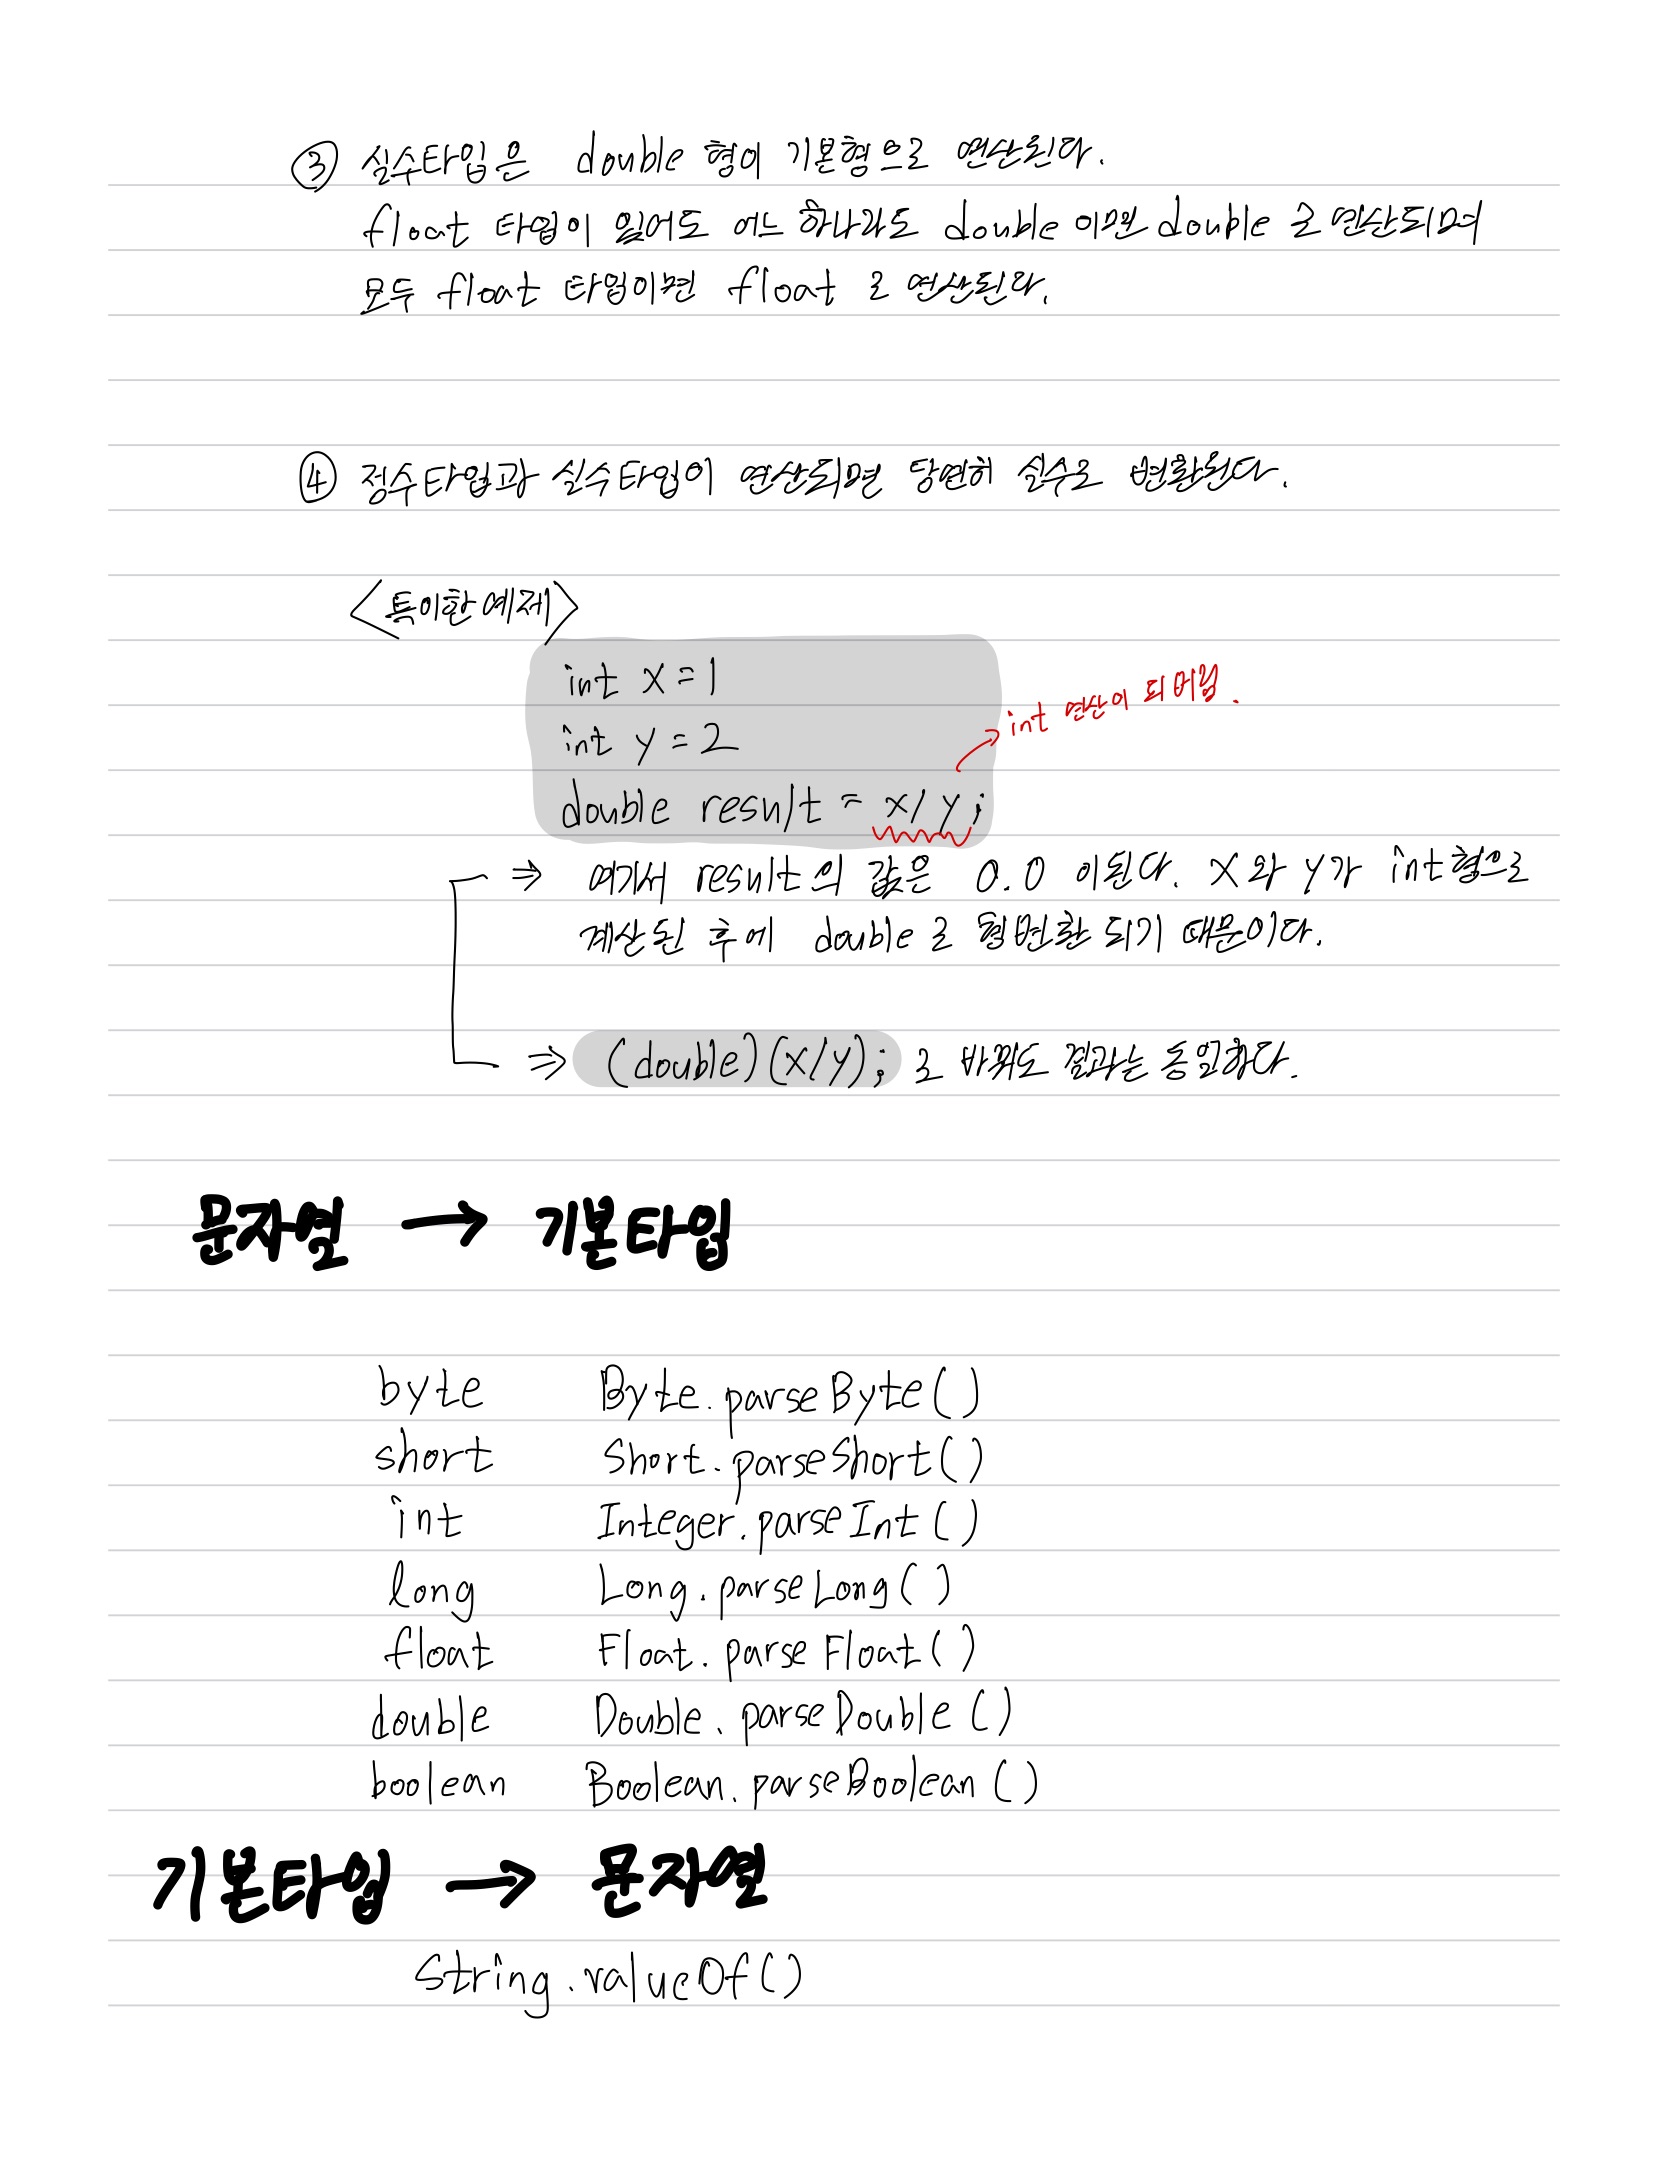 ③ 실수타입은 double 형이 기본형으로 연산된다.
float 타입이 있어도 어느 하나라도 double 이면 double 로 연산되며
모두 float 타입이면 float 로 연산된다.
④ 정수타입과 실수타입이 연산되면 당연히 실수로 변환된다.
<특이한 예제>
int x = 1
int y = 2
double result = x/y;
int 연산이 되어버림.
⇒ 여기서 result의 값은 0.0 이된다. x와 y가 int형으로
계산된 후에 double로 형변환 되기 때문이다.
⇒ (double)(x/y); 로 바꿔도 결과는 동일하다.
문자열 → 기본타입
byte Byte.parseByte()
short Short.parseShort()
int Integer.parseInt()
long Long.parseLong()
float Float.parseFloat()
double Double.parseDouble()
boolean Boolean.parseBoolean()
기본타입 → 문자열
String.valueOf()